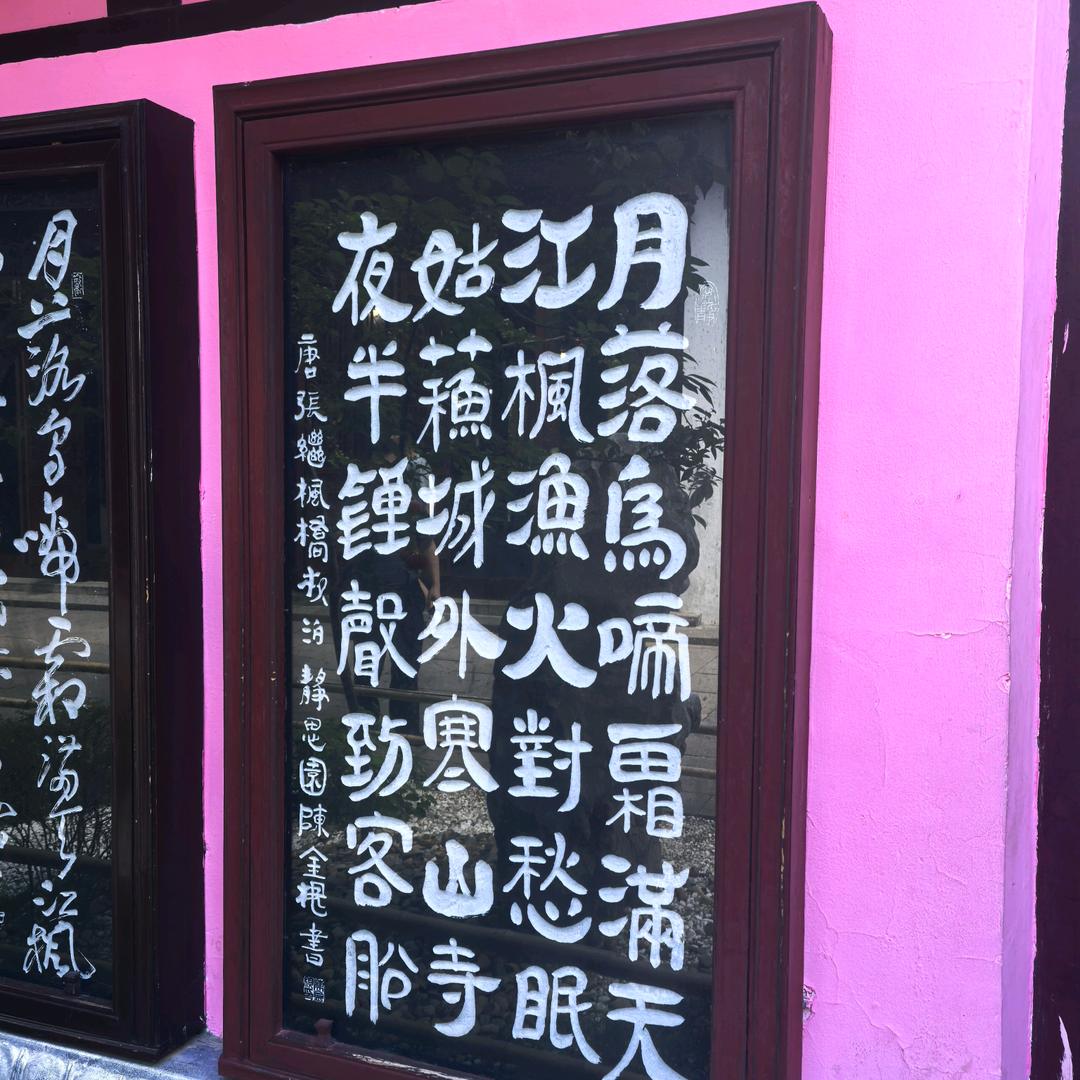 月落烏啼霜滿天
江楓漁火對愁眠
姑蘓城外寒山寺
夜半鍾聲到客船
唐張繼楓橋夜泊 靜思園陳金根書
月落烏啼霜滿天江楓